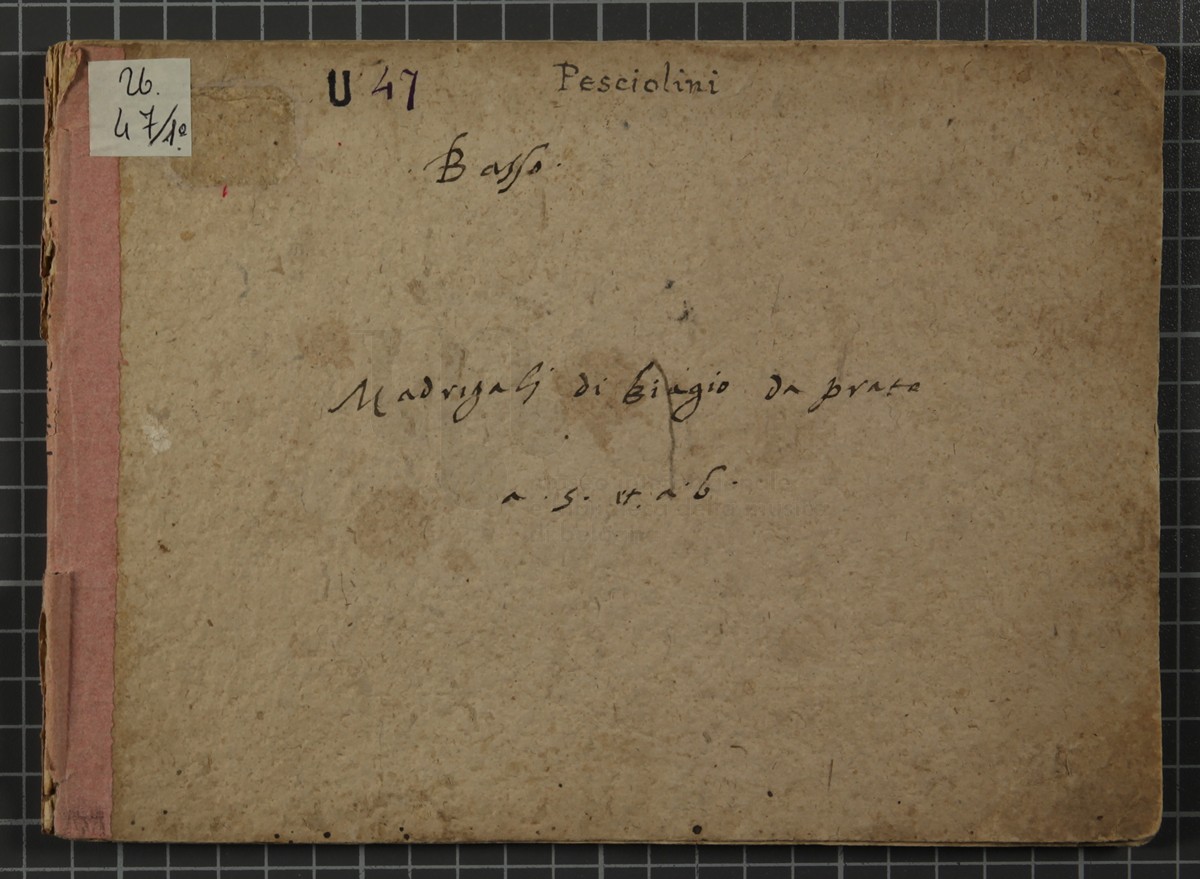 U.
47/1º
U 47
Pesciolini
Basso.
Madrigali di biagio da prato
a. 5. et. a. 6.